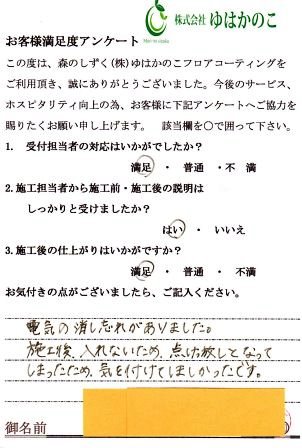 株式会社 ゆはかのこ
お客様満足度アンケート
この度は、森のしずく(株)ゆはかのこフロアコーティングを
ご利用頂き、誠にありがとうございました。今後のサービス、
ホスピタリティ向上の為、お客様に下記アンケートへご協力を
賜りたくお願い申し上げます。 該当欄を○で囲って下さい。
1. 受付担当者の対応はいかがでしたか？
満足 ・ 普通 ・不 満
2.施工担当者から施工前・施工後の説明は
しっかりと受けましたか？
はい ・ いいえ
3.施工後の仕上がりはいかがですか？
満足 ・ 普通 ・ 不満
お気付きの点がございましたら、ご記入ください。
電気の消し忘れがありました。
施工後、入れないため、点け放しとなって
しまったため、気を付けてしましかったです。
御名前